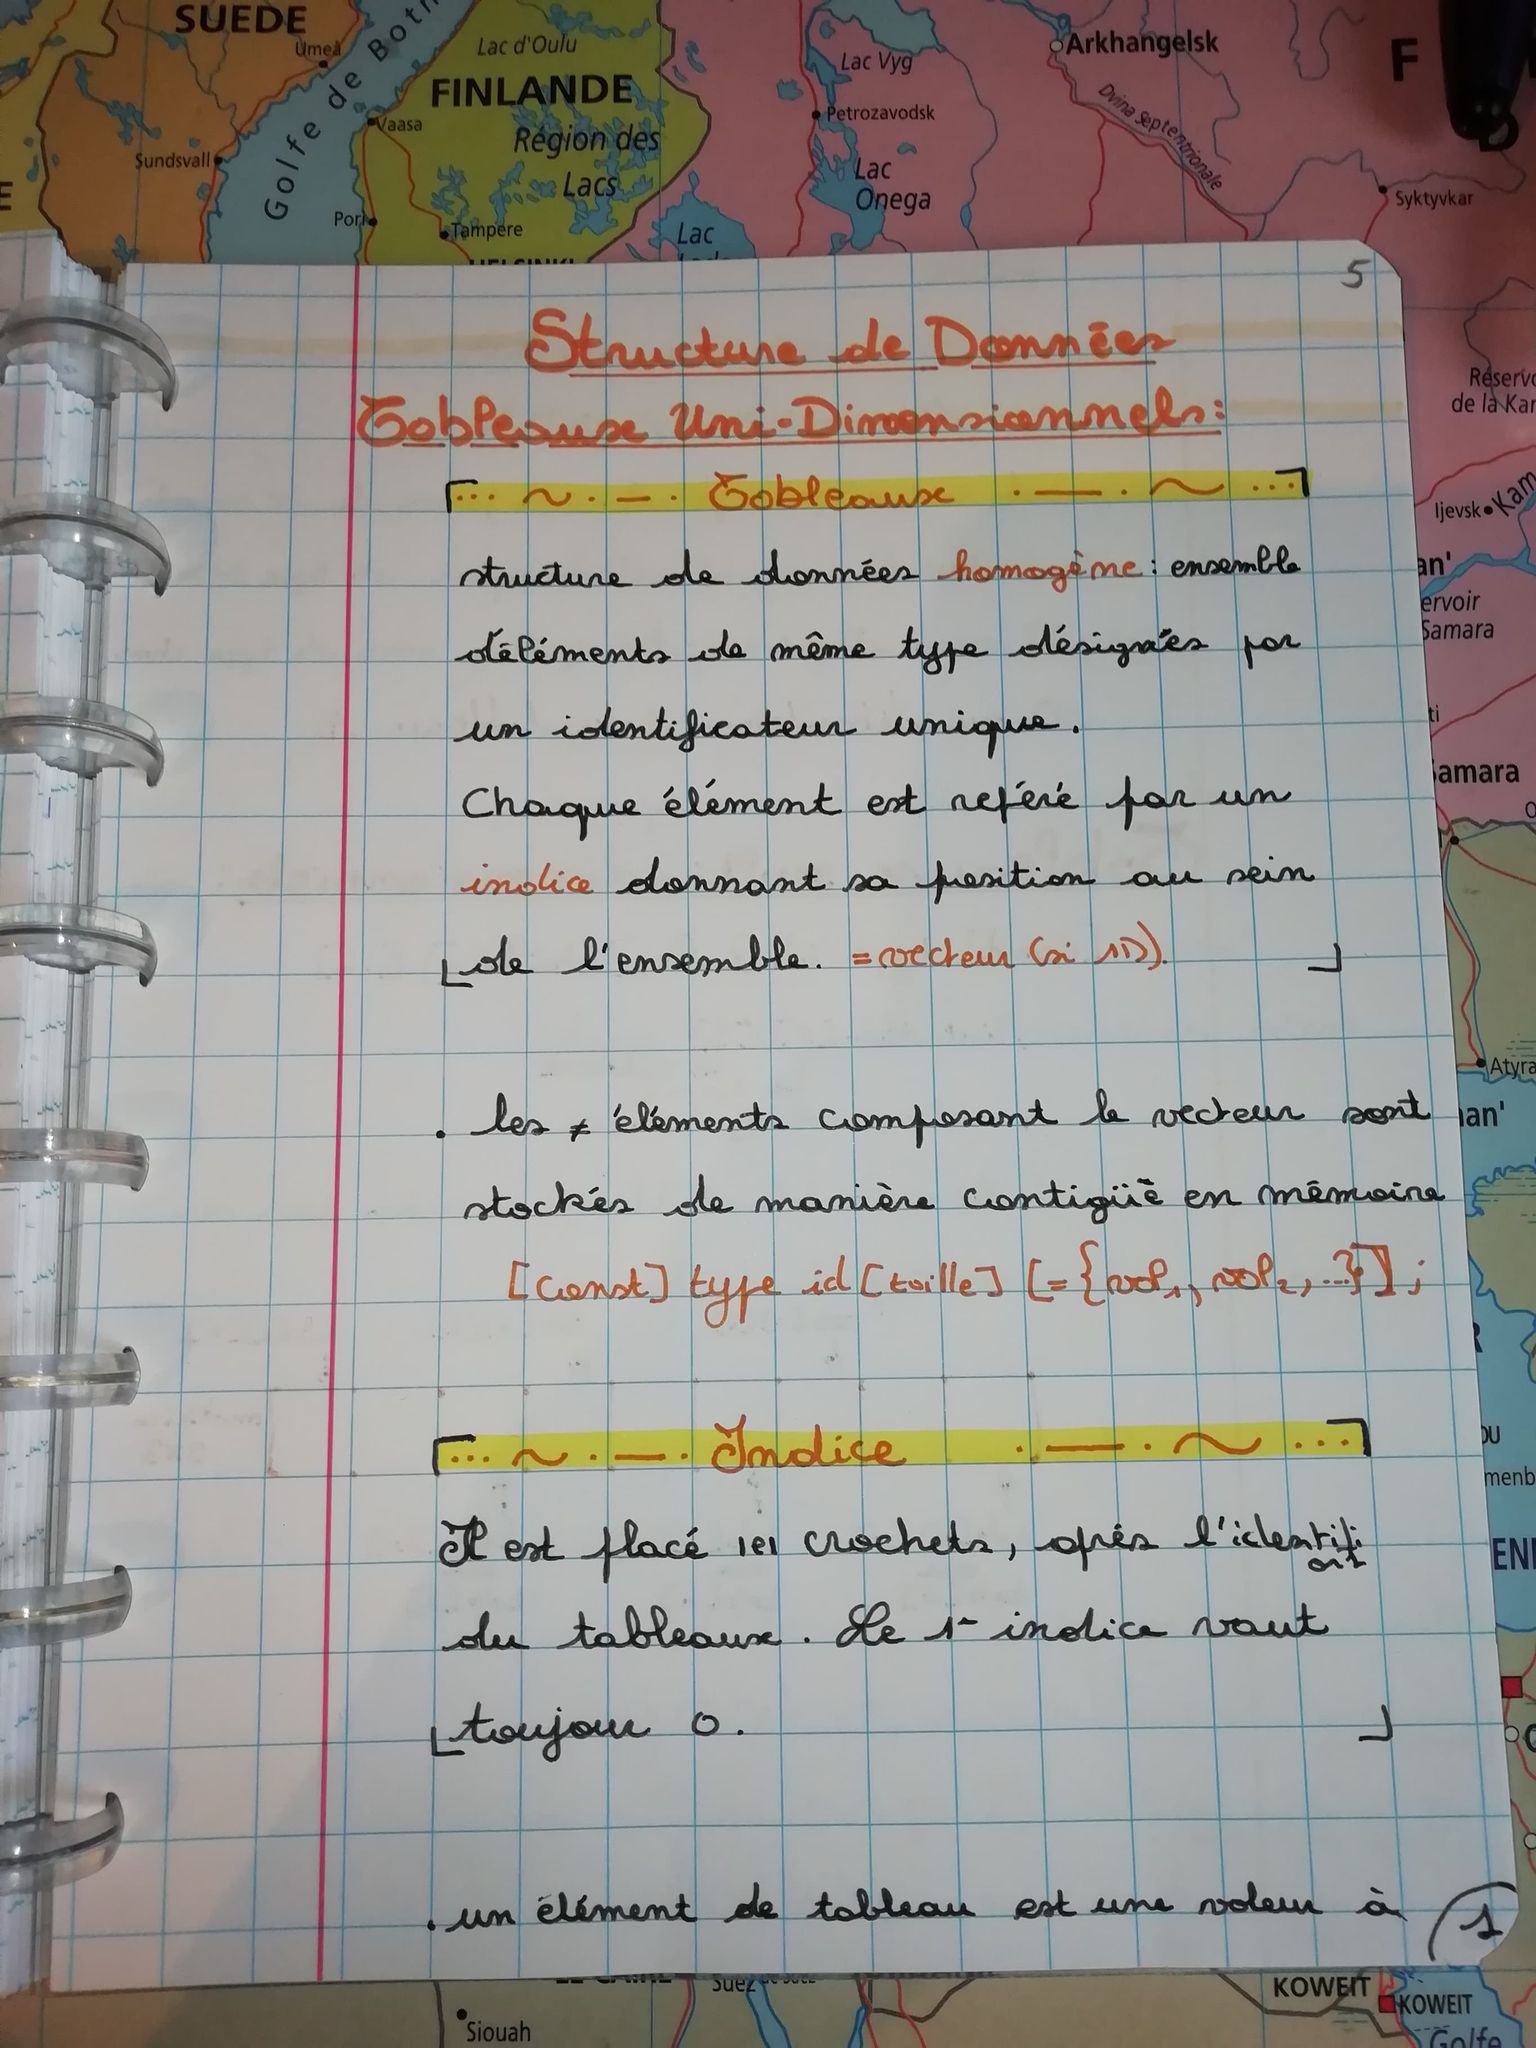 SUEDE
Umeå
Lac d'Oulu
Golfe de Botn
FINLANDE
Vaasa
Région des
Lacs
Sundsvall
Pori
Tampere
HELSINKI
Lac Vyg
Petrozavodsk
Lac
Onega
Lac
Arkhangelsk
Dvina septentrionale
Syktyvkar
F
E
5
Structure de Données
Tableaux Uni-Dimensionnels:
... ~ . — . Tableaux . — . ~ ...
structure de données homogène : ensemble
d'éléments de même type désignés par
un identificateur unique.
Chaque élément est référé par un
indice donnant sa position au sein
de l'ensemble. = vecteur (si 1D).
. les ≠ éléments composant le vecteur sont
stockés de manière contigüe en mémoire
[const] type id [taille] [= {val1, val2, ...}] ;
... ~ . — . Indice . — . ~ ...
Il est placé crochets, après l'identifi
ant
du tableaux. Le 1er indice vaut
toujour 0.
. un élément de tableau est une valeur à
1
Réservo
de la Kam
Ijevsk
Kam
an'
ervoir
Samara
ti
amara
Atyra
an'
R
OU
menb
ENI
LE CAIRE
Suez
Siouah
KOWEIT
KOWEIT
Golfe